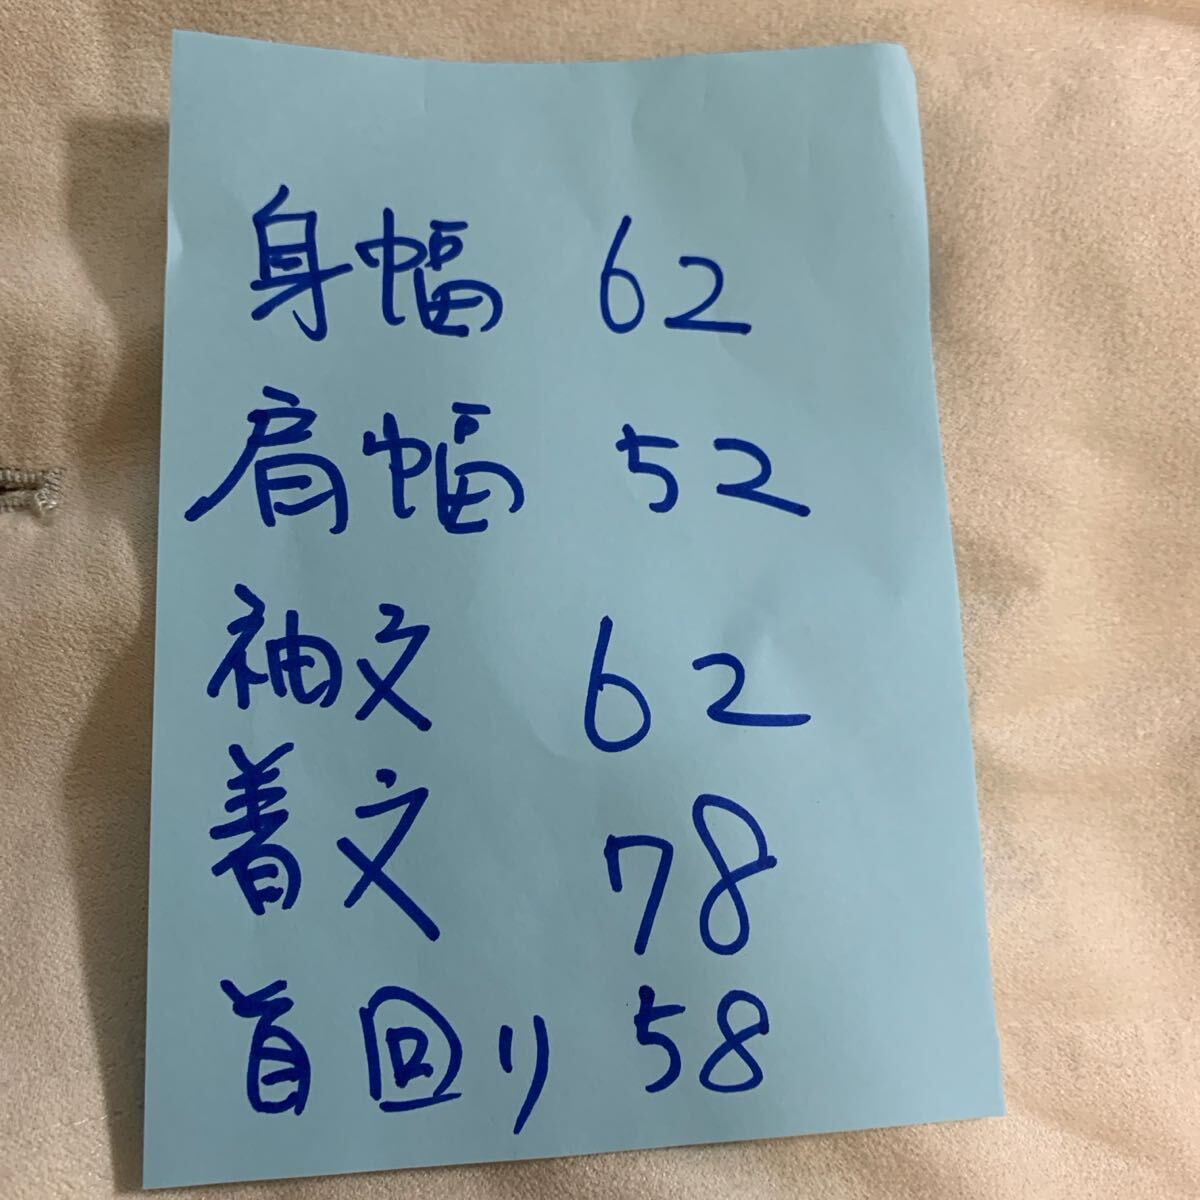 身幅 62
肩幅 52
袖丈 62
着丈 78
首回り 58